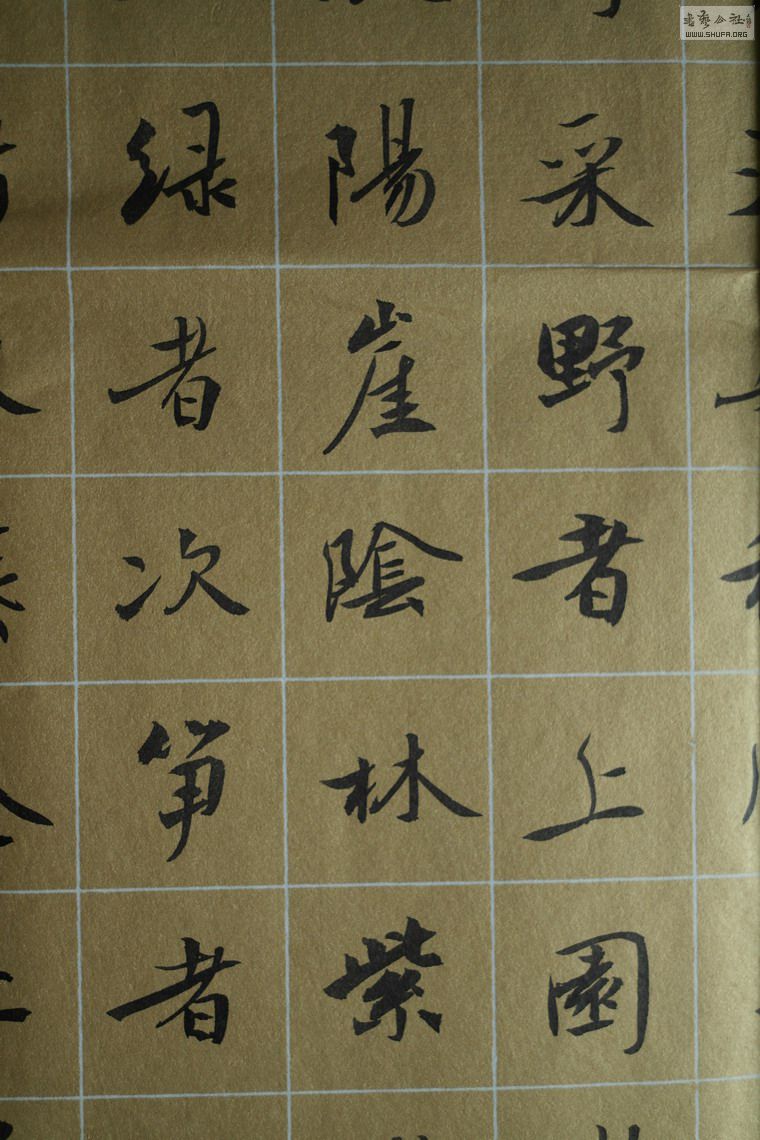 采野者上園
陽崖陰林紫
绿者次笋者
書藝公社
WWW.SHUFA.ORG